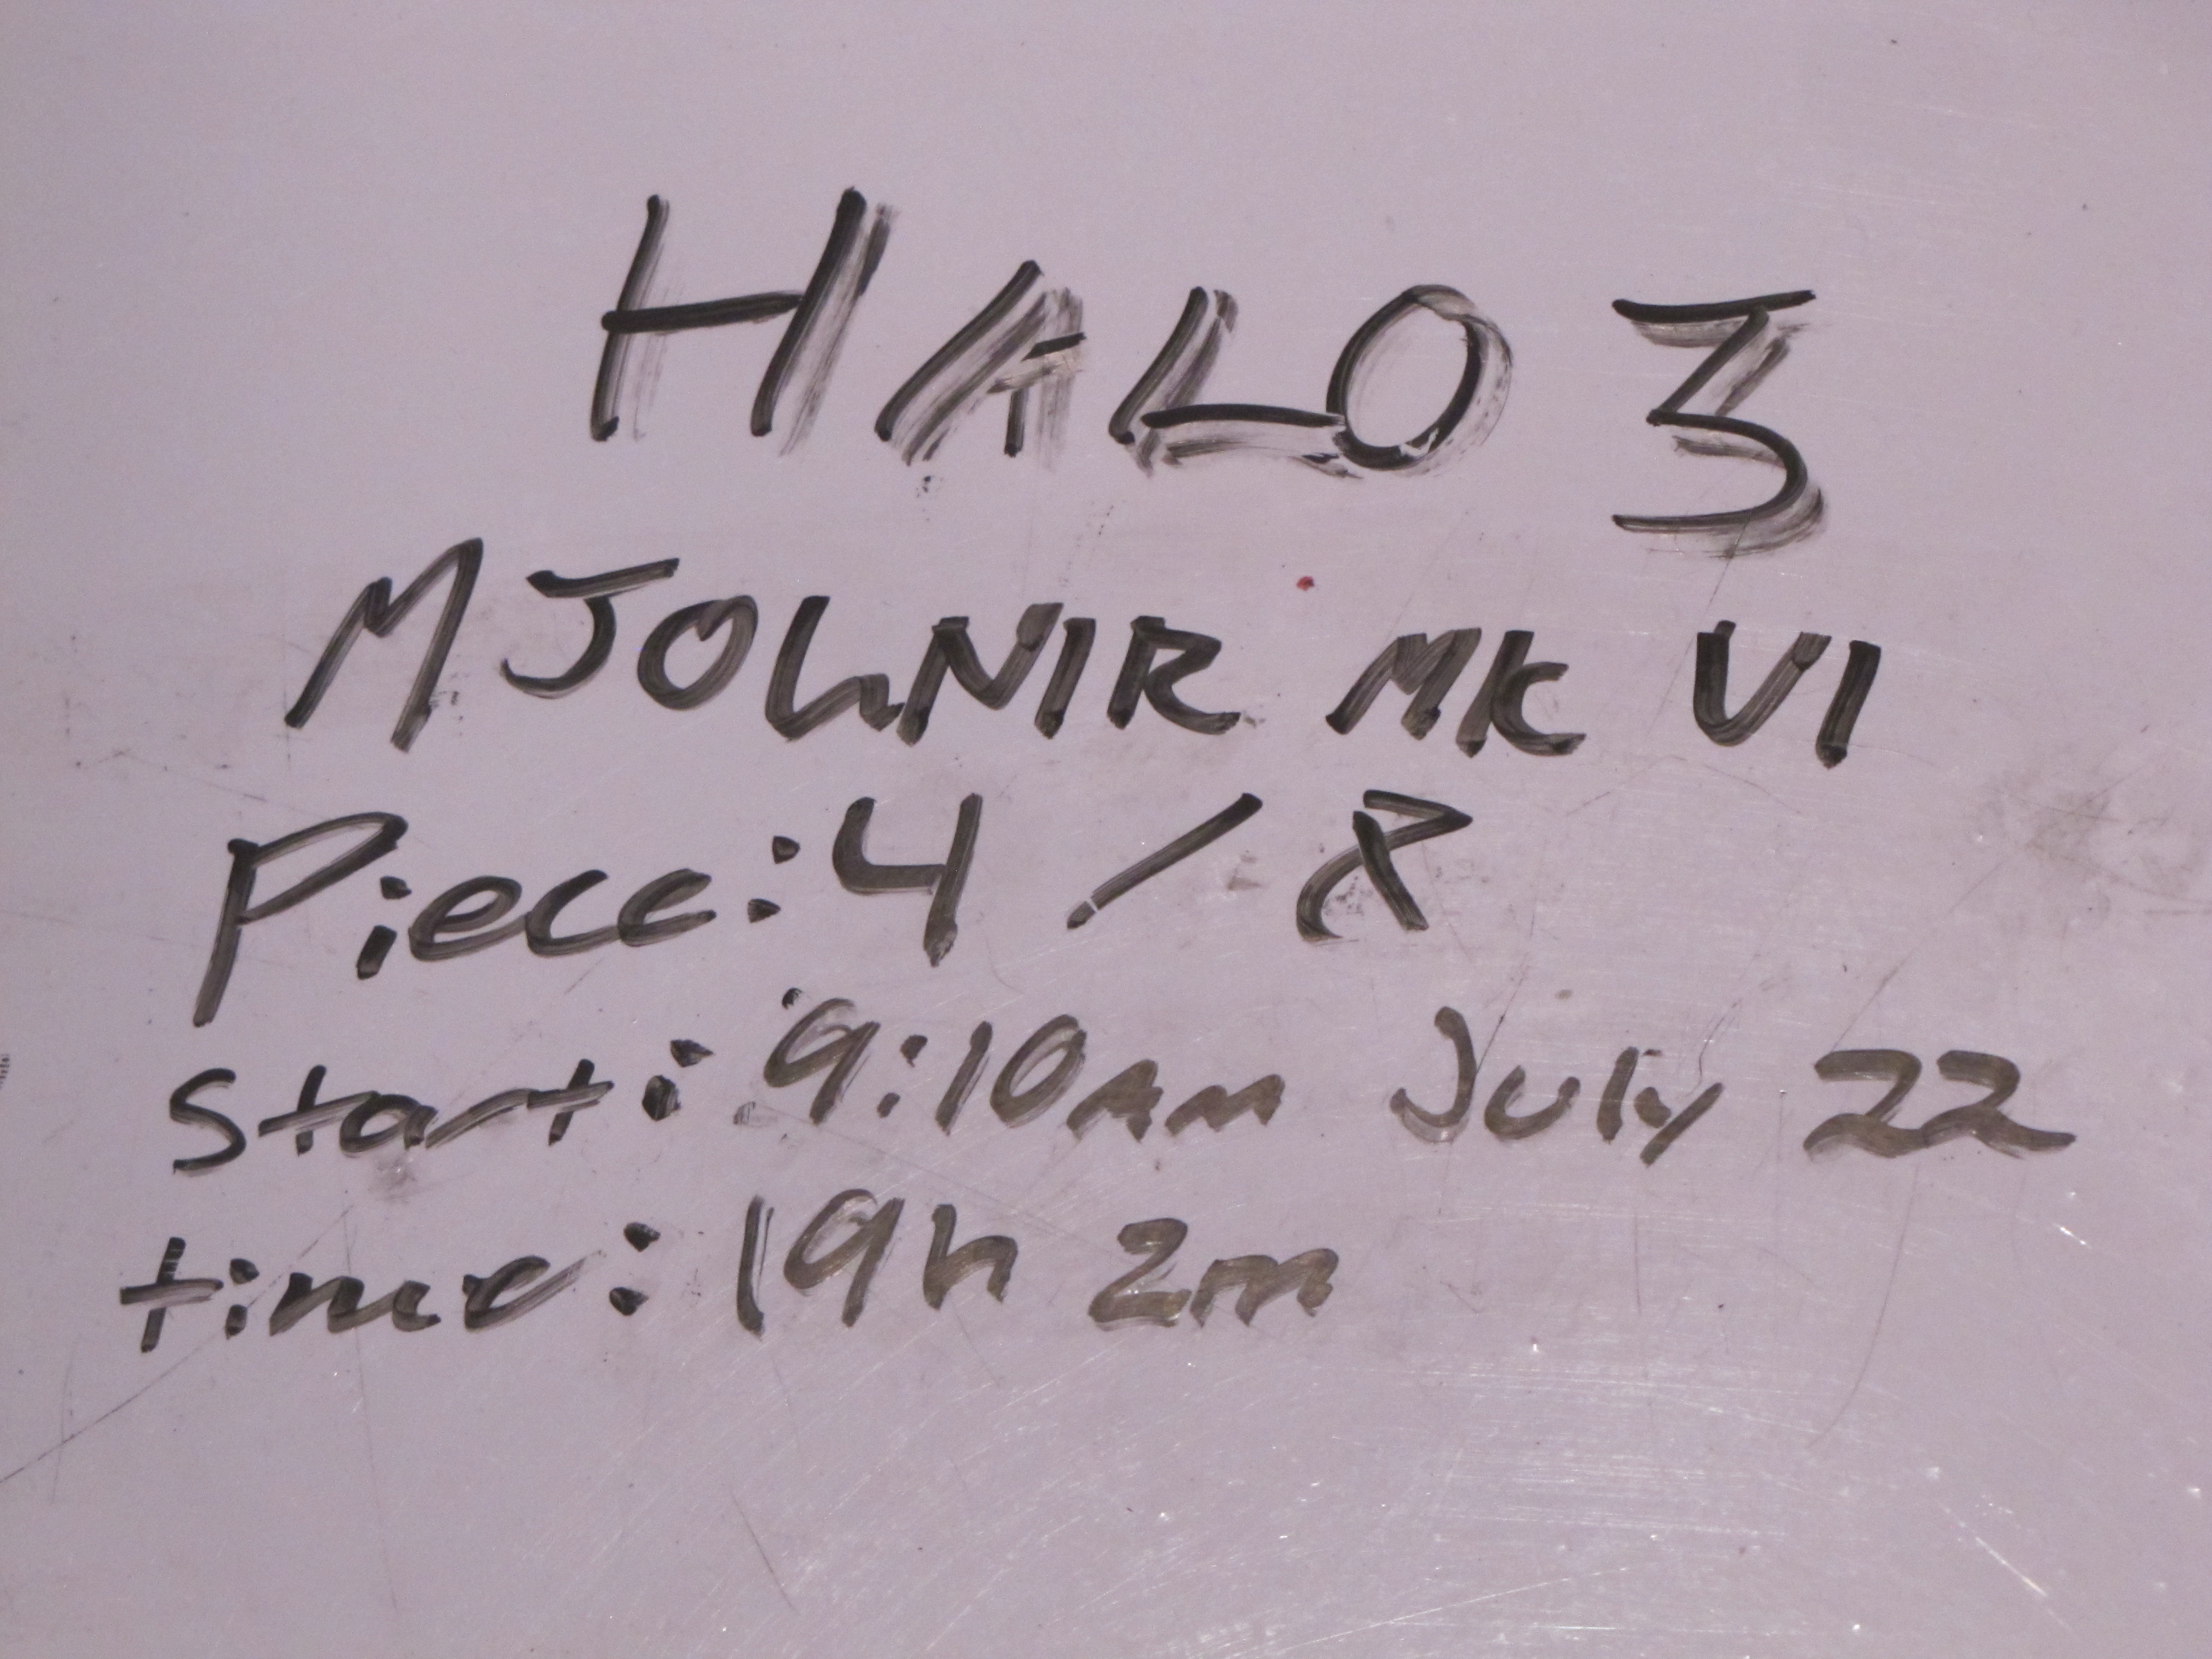 HALO 3
MJOLNIR MK VI
Piece: 4 / 8
Start: 9:10AM July 22
time: 19h 2m